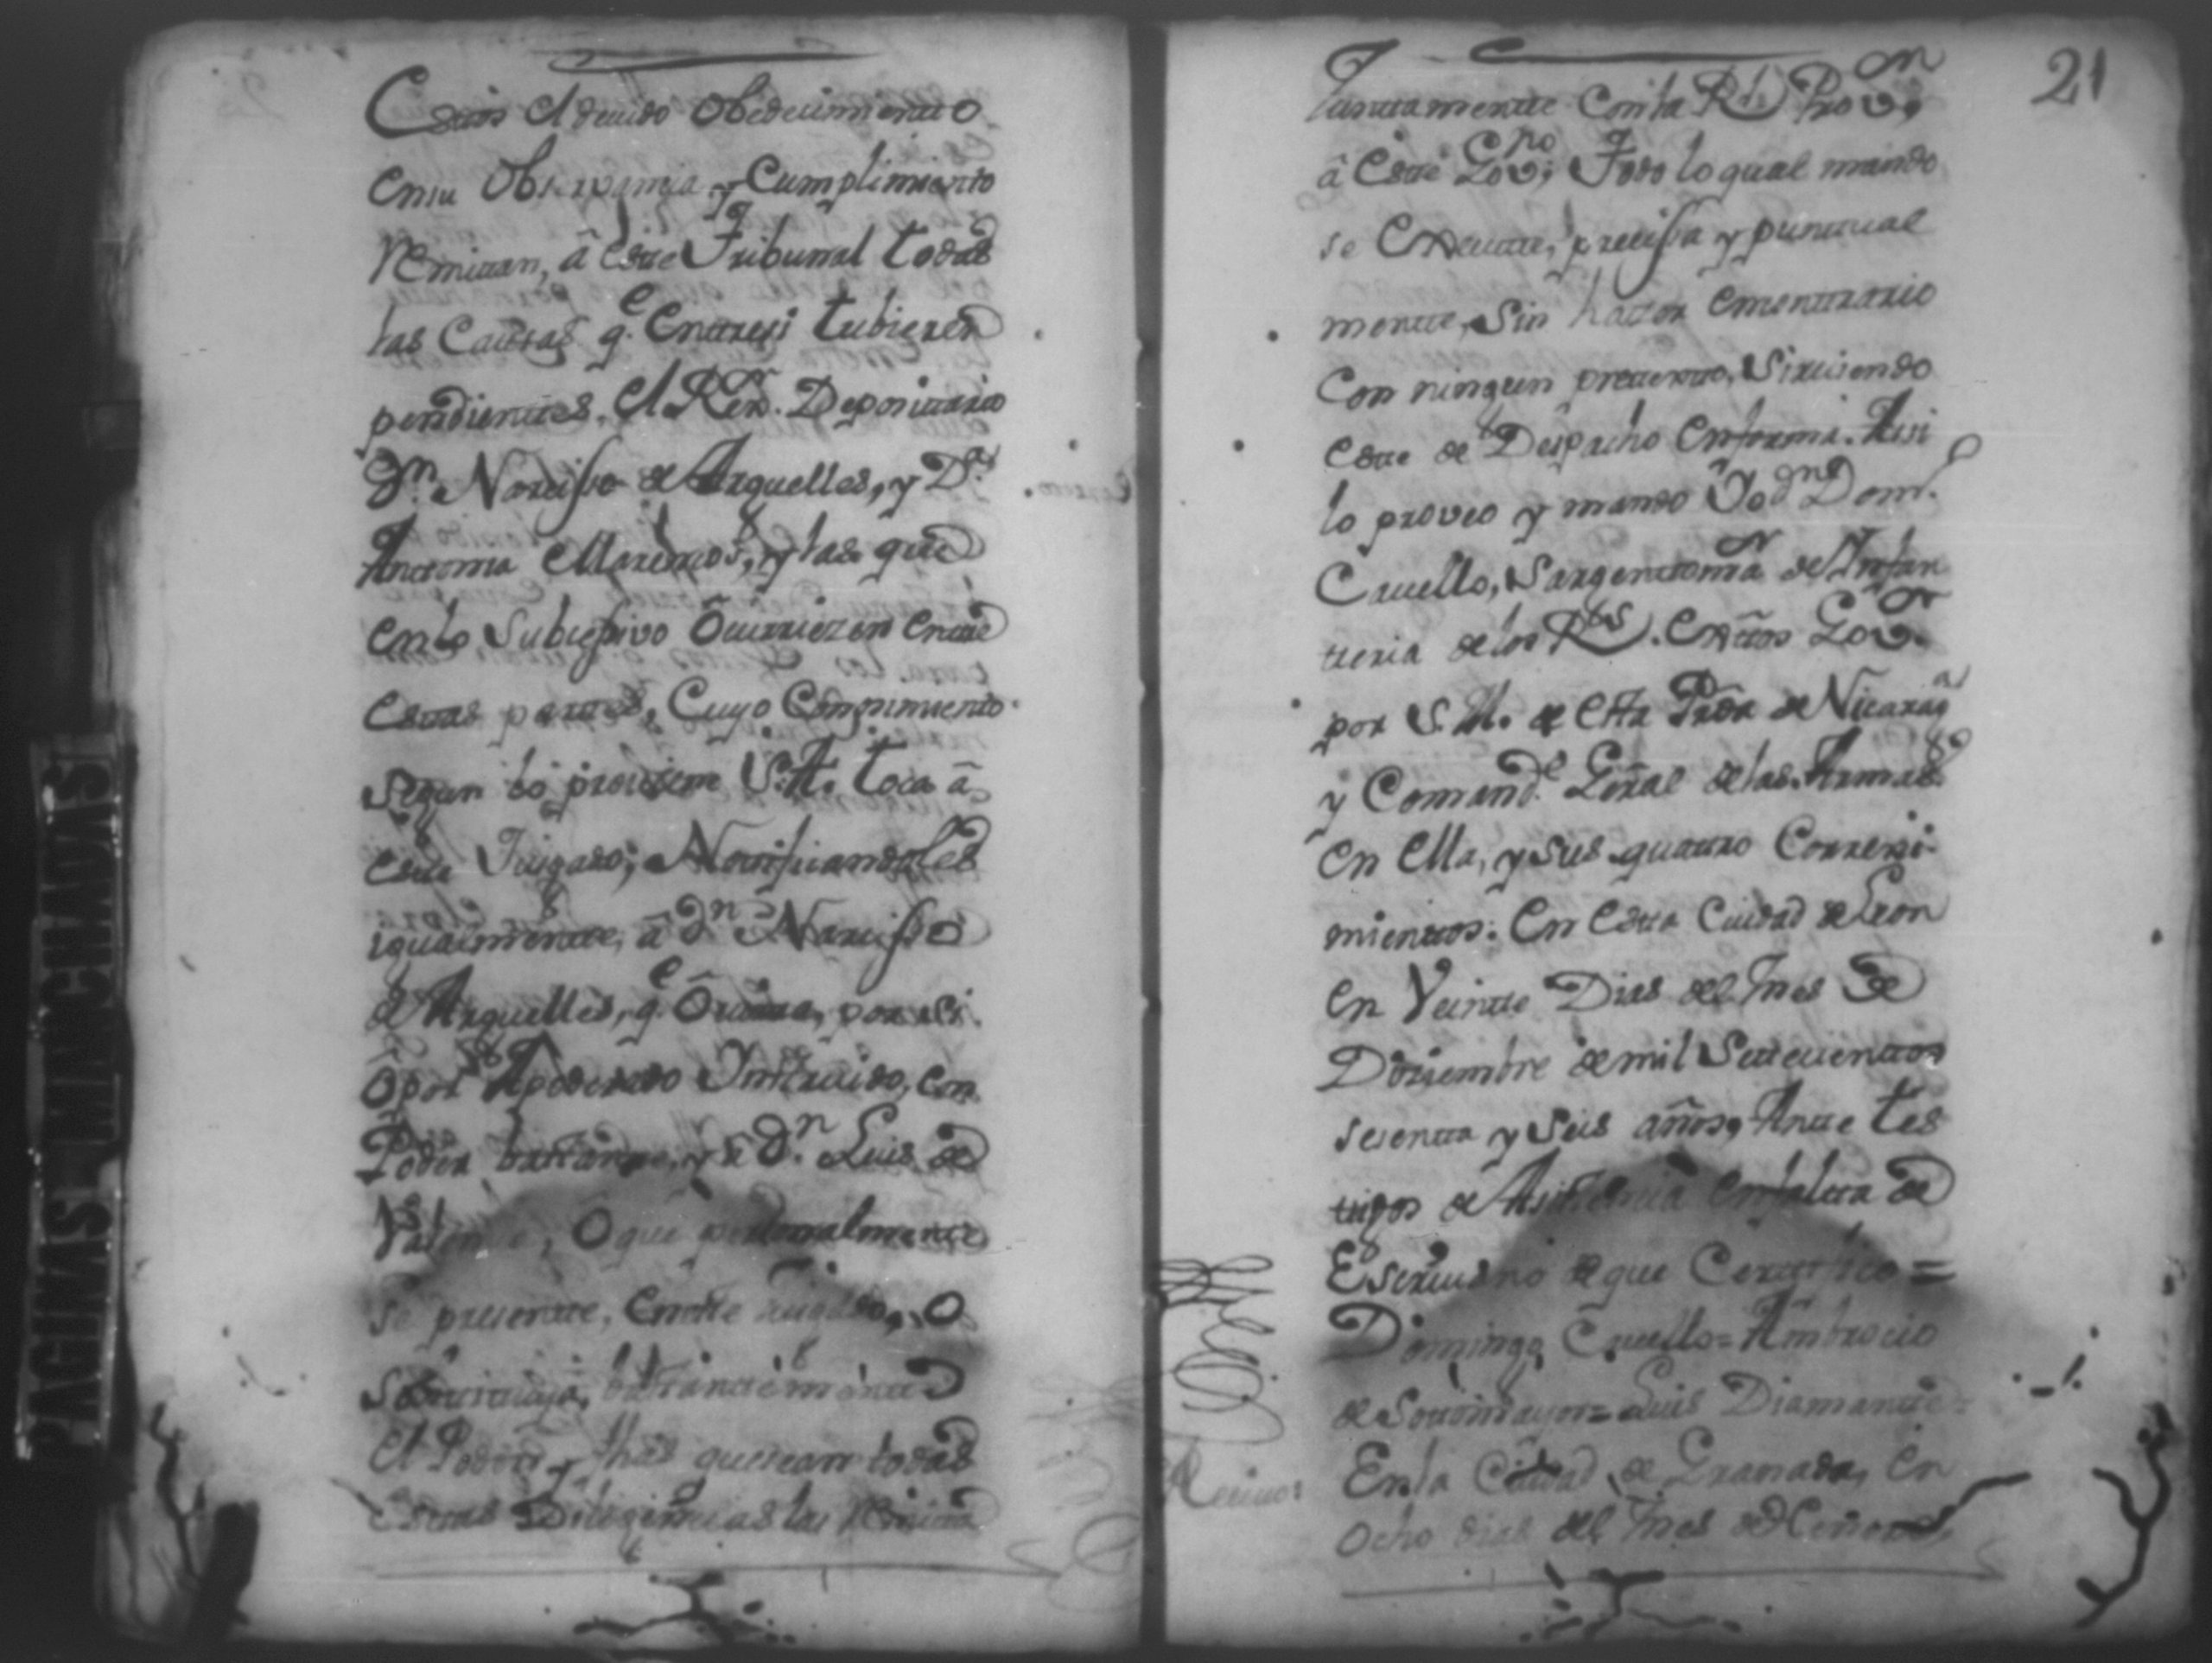 Estos el deuido obedecimiento
en su Observancia, y Cumplimiento
Remitan, â este Tribunal todas
las Causas q.e entre si tubieren
pendientes, el R.Ser. Depositario
D.n Narcisso de Arguelles, y D.a
Antonia
en lo Subcesivo ôcurrieren entre
estas partes, Cuyo Conosimiento
segun lo previene S.A. toca â
este Jusgado; Notificandoles
igualmente, â d.n Narcisso
de Arguelles, q.e por si
ô por Apoderado Instruido, con
Poder bastante, y â D.n Luis de
ô que personalmente
se presente, en este Jusgado, o
Sobstituya, bastantemente
el Poder y thas que sean todas
estas Diligencias las Remita
21
Juntamente con la R.l Prov.on
â este Gov.no Todo lo qual mando
se Execute, precissa y puntual
mente, Sin hacer en contrario
Con ningun pretexto, Sirviendo
este de Despacho en forma. Assi
lo proveo y mando Yo d.n Dom.o
Cavello, Sargento ma.r de Infan
teria de los R.s Extos Gov.or
por S.M. de esta Proa de Nicarag.a
y Comand.e Genal de las Armas
en ella, y sus quatro Correxi
mientos: En esta Ciudad de Leon
en Veinte Dias del Mes de
Dosiembre de mil Settecientos
sesenta y Seis años, Ante tes
tigos de Asistencia en falta de
Escriuano de que Certifico =
Domingo Cavello = Ambrocio
de Sotomayor = Luis Diamante =
Reciuo:
En la Ciudad, de Granada, en
Ocho dias del Mes de Enero
PAGINAS MANCHADAS